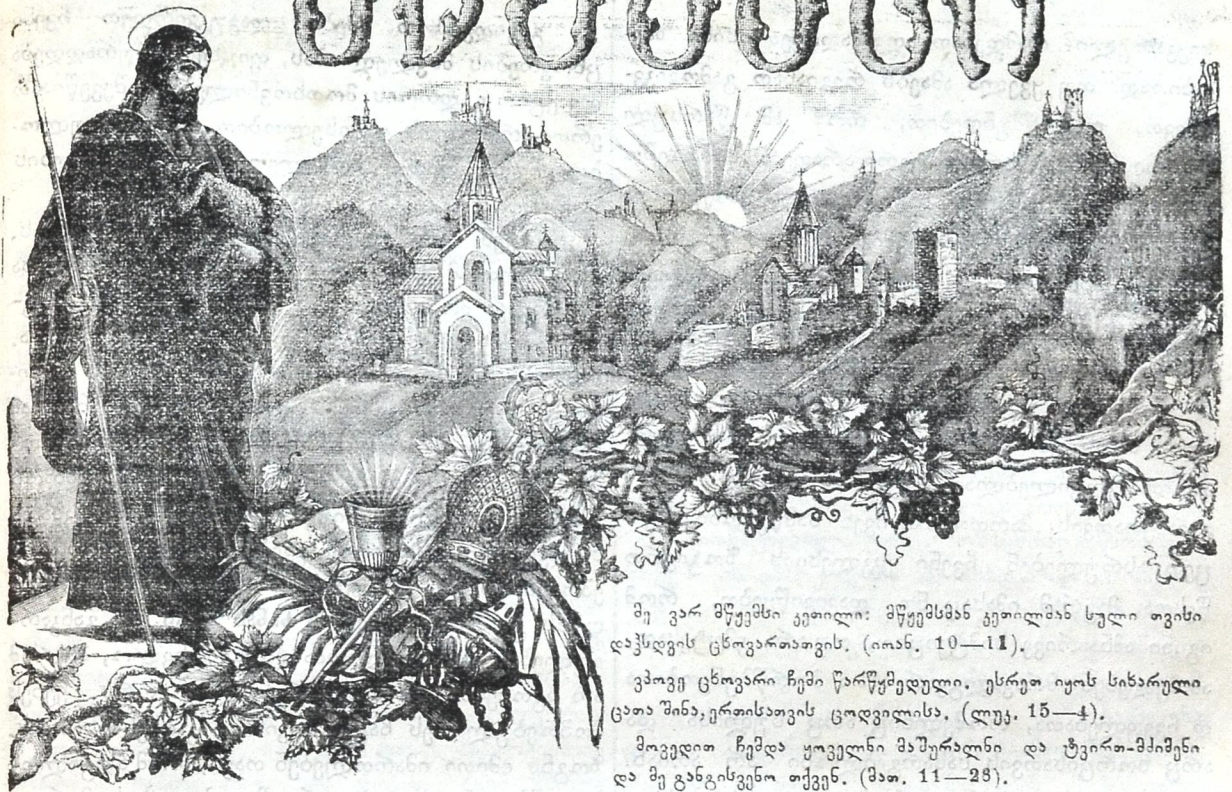 მწყემსი
მე ვარ მწყემსი კეთილი: მწყემსმან კეთილმან სული თვისი
დაჰსდვის ცხოვართათვის. (იოან. 10—11).
ვპოვე ცხოვარი ჩემი წარწყმედული. ესრეთ იყოს სიხარული
ცათა შინა, ერთისათვის ცოდვილისა. (ლუკ. 15—4).
მოვედით ჩემდა ყოველნი მაშურალნი და ტვირთ-მძიმენი
და მე განგისვენო თქვენ. (მათ. 11—28).